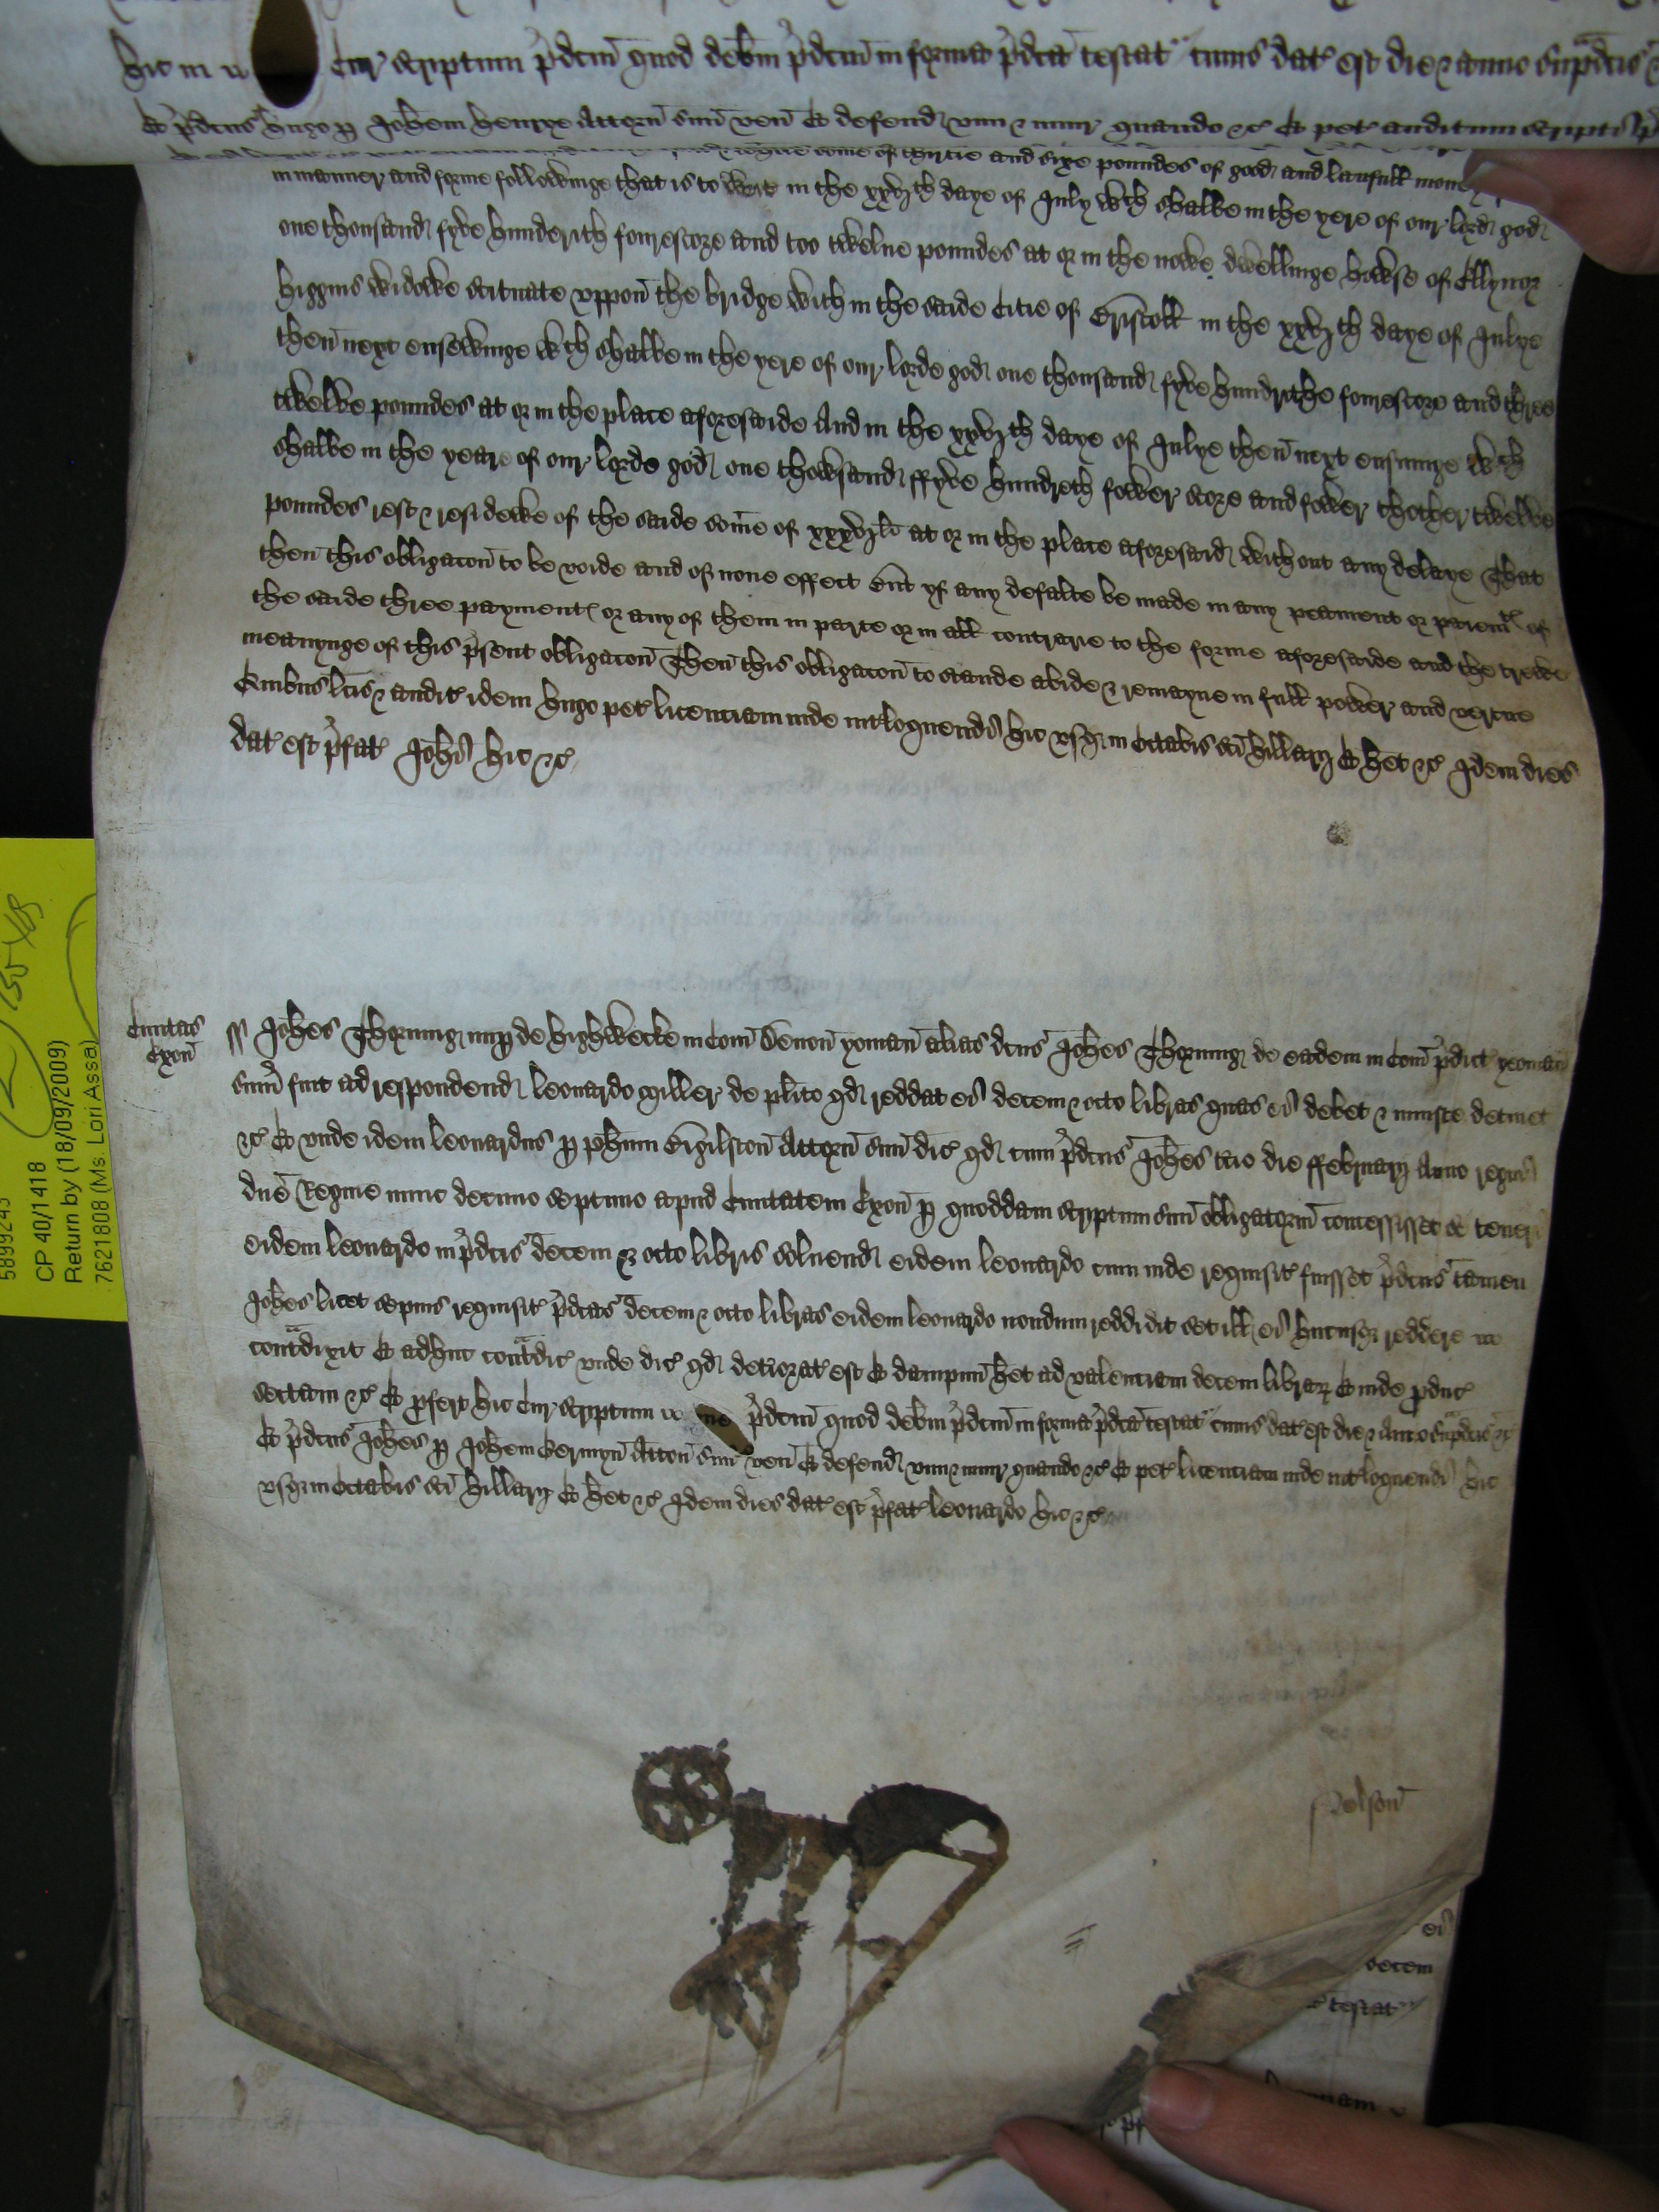 hic in Cur scriptum p̃dcm̃ quod deb̃m p̃dcm̃ in forma p̃dca testat cuius dat est die & anno sup̃dcis
Et p̃dcus Hugo p Joh̃em Henrye Attorñ suũ veñ Et defend vim & iniur quando &c Et pet auditum scripti
some of thirtie and sixe poundes of good and laufull money
in manner and forme followinge that is to in the xxvjth daye of July wch shalbe in the yere of our lord god
one thousand fyve hunderith fourescore and too twelue poundes at or in the nowe dwellinge howse of Ellynor
Higgins widowe scituate vppon the bridge with in the saide Citie of Bristoll in the xxvjth daye of Julye
then next ensewinge wch shalbe in the yere of our lorde god one thousand fyve hundrithe fourescore and three
twelve poundes at or in the place aforesaide And in the xxvjth daye of Julye then next ensuinge wch
shalbe in the yeare of our lorde god one thowsand ffyve hundreth fower score and fower thother twelve
poundes rest & residewe of the saide som̃e of xxxvjli at or in the place aforesaid without any delaye That
then this obligacoñ to be voide and of none effect But yf any defalte be made in any peament or of
the saide three payment or any of them in parte or in all contrarie to the forme aforesaide and the trewe
meanynge of this p̃sent obligacoñ Then this obligacoñ to stande abide & remayne in full power and vertue
Quibus lc̃is & audit idem Hugo pet licenciam inde int̃loquendi hic vsq in Octabis sc̃i Hillarij Et het &c Idem dies
dat est p̃fat Joh̃i hic &c
Ciuitas
Exoñ
ss Joh̃es Thornyng nup de Highwecke in Com̃ Deuoñ yomañ alias dc̃us Joh̃es Thornyng de eadem in Com̃ p̃dict yeoman
sum̃ fuit ad respondend Leonardo Miller de plĩto qd reddat ei decem & octo libras quas ei debet & iniuste detinet
&c Et vnde idem Leonardus p ph̃um Attorñ suũ dic qd cum p̃dcus Joh̃es die ffebruarij Anno regni
dñe Regine nunc decimo septimo apud Ciuitatem Exoñ p quoddam scriptum suũ obligatoriũ concessisset se teneri
eidem Leonardo in p̃dcis decem & octo libris soluend eidem Leonardo cum inde requisit fuisset p̃dcus tamen
Joh̃es licet sepius requisit p̃dcas decem & octo libras eidem Leonardo nondum reddidit set ill ei hucusq reddere
contradixit Et adhuc contradic vnde dic qd deteriorat est Et dampnũ het ad valenciam decem librar Et inde pduc
sectam &c Et pfert hic Cur scriptum p̃dcm̃ quod deb̃m p̃dcm̃ in forma p̃dca testat cuius dat est die & Anno sup̃dcis &c
Et p̃dcus Joh̃es p Joh̃em Attorñ suũ veñ Et defend vim & iniur quando &c Et pet licenciam inde int̃loquendi hic
vsq in Octabis sc̃i Hillarij Et het &c Idem dies dat est p̃fat Leonardo hic &c
ei
decem
testat
5899243
CP 40/1418
Return by (18/09/2009)
7621808 (Ms. Lori Assa)